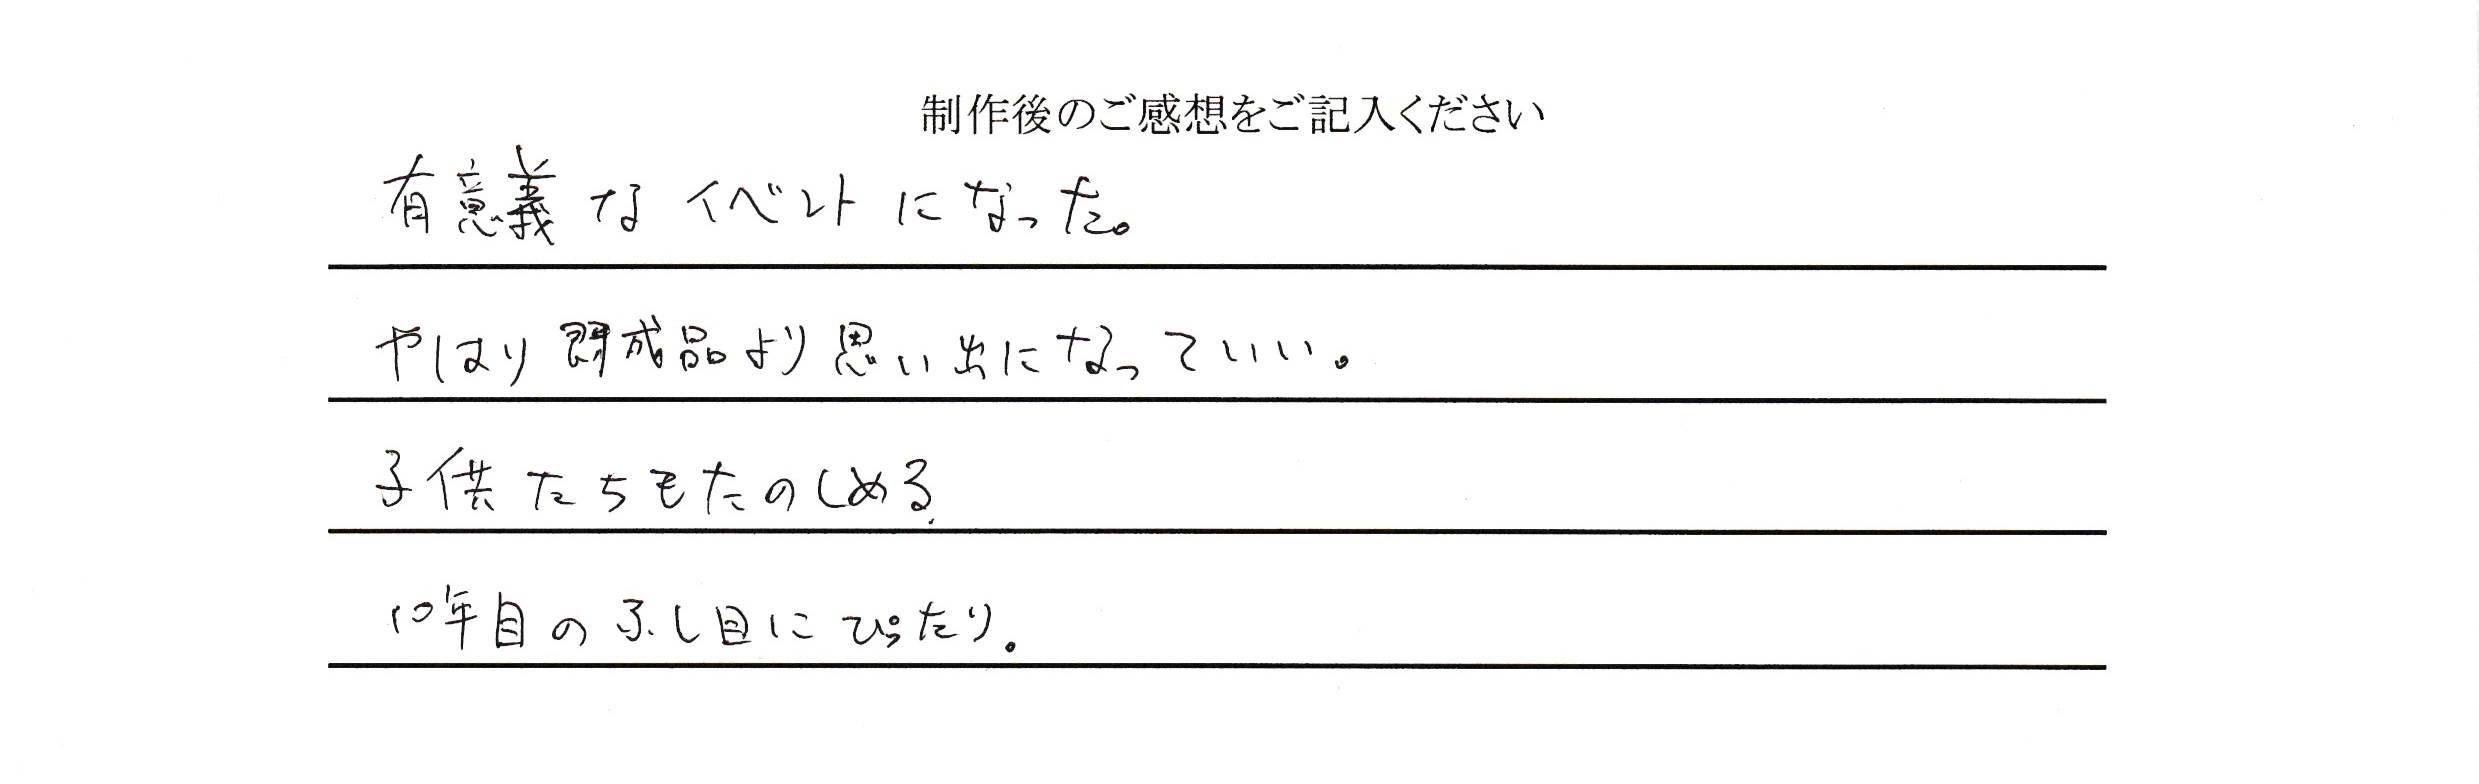 制作後のご感想をご記入ください
有意義なイベントになった。
やはり既成品より思い出になっていい。
子供たちもたのしめる.
10年目のふし目にぴったり。